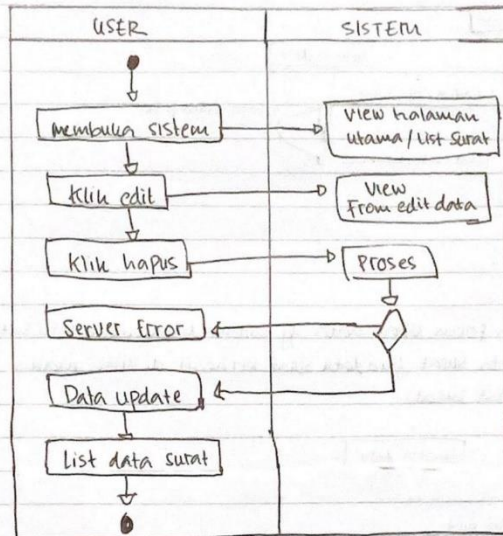 USER
SISTEM
membuka sistem
View halaman
utama / List Surat
Klik edit
View
From edit data
Klik hapus
Proses
Server Error
Data update
List data surat